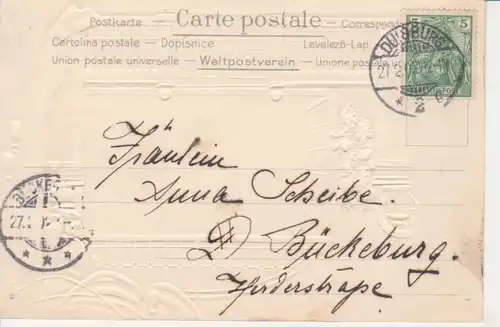 Postkarte — Carte postale — Correspond
Cartolina postale — Dopisnice Levelező-Lap
Union postale universelle — Weltpostverein — Unione postale
5 5
DUISBURG
27.2
* 2
Fräulein
Anna Scheibe.
Bückeburg.
Herderstraße
27.
* * *